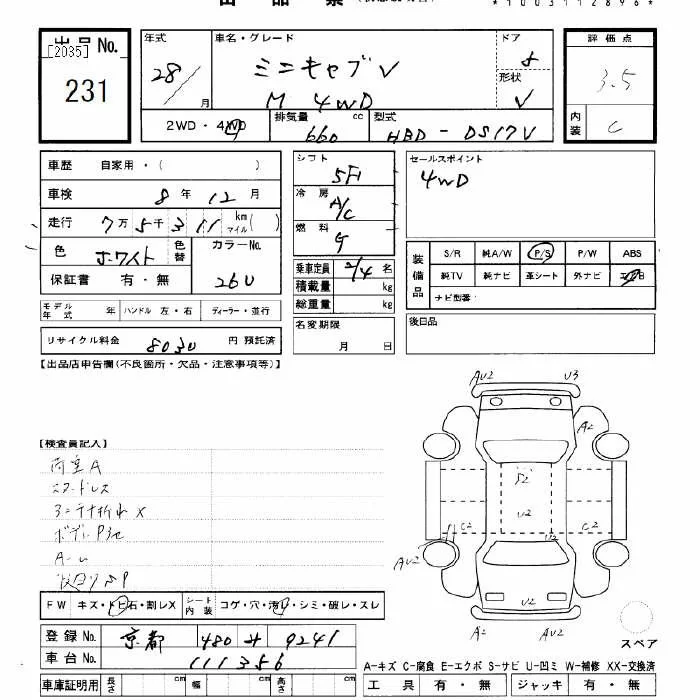 *1003112896*
出品No.
[2035]
231
年式
28/
月
車名・グレード
ミニキャブV
M 4WD
ドア
5
形状
V
評価点
3.5
内装
C
2WD・4WD
排気量
660
cc
型式
HBD - DS17V
車歴
自家用・(
)
車検
8年12月
走行
7万5千311
km
マイル
(
)
色
ホワイト
色替
カラーNo.
26U
保証書
有・無
モデル年式
年
ハンドル 左・右
ディーラー・並行
リサイクル料金
8030
円 預託済
シフト
5F1
冷房
A/C
燃料
G
乗車定員
2/4
名
積載量
kg
総重量
kg
名変期限
月
日
セールスポイント
4WD
装備品
S/R
純A/W
P/S
P/W
ABS
純TV
純ナビ
革シート
外ナビ
エアB
ナビ型番:
後日品
【出品店申告欄(不良箇所・欠品・注意事項等)】
【検査員記入】
荷室A
F W
キズ・トビ石・割レX
シート内装
コゲ・穴・汚レ・シミ・破レ・スレ
登録No.
京都
480
サ
9241
車台No.
111356
車庫証明用
長さ
cm
幅
cm
高さ
cm
AU2
U3
A2
S2
U2
C2
C2
AU2
U2
U2
AU2
スペア
A-キズ C-腐食 E-エクボ S-サビ U-凹ミ W-補修 XX-交換済
工具
有・無
ジャッキ
有・無